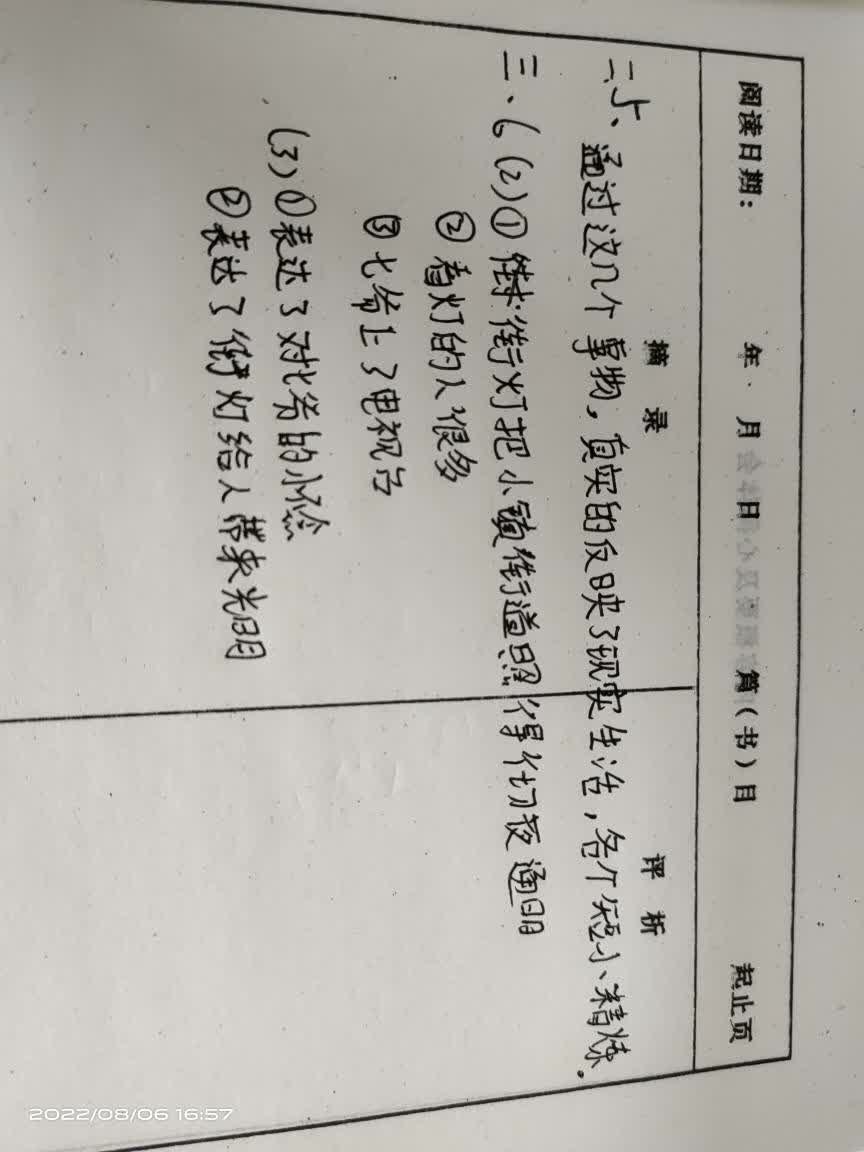 阅读日期： 年 月 日 篇（书）目 起止页
摘 录 评 析
二、5、通过这几个事物，真实的反映了现实生活，各个短小、精炼。
三、6(2)① 街灯把小镇街道照得彻夜通明
② 看灯的人很多
③ 七爷上了电视台
(3)①表达了对七爷的
②表达了街灯给人带来光明
2022/08/06 16:57